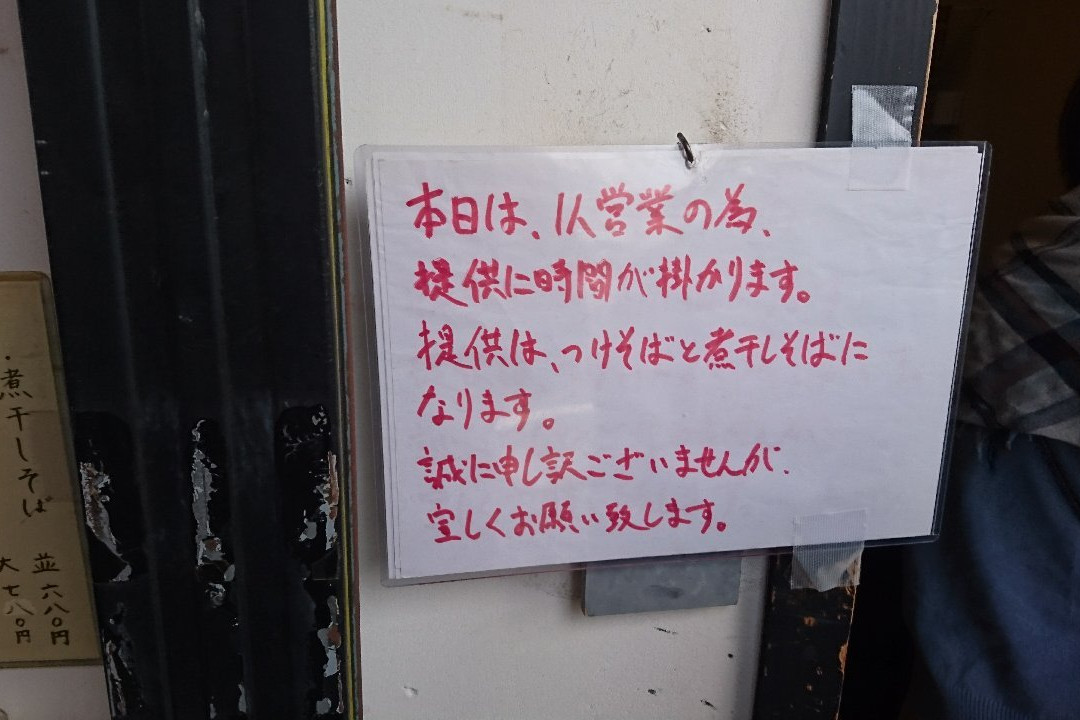 本日は、1人営業の為、
提供に時間が掛かります。
提供は、つけそばと煮干しそばに
なります。
誠に申し訳ございませんが、
宜しくお願い致します。
・煮干しそば
並 六八〇円
大 七八〇円